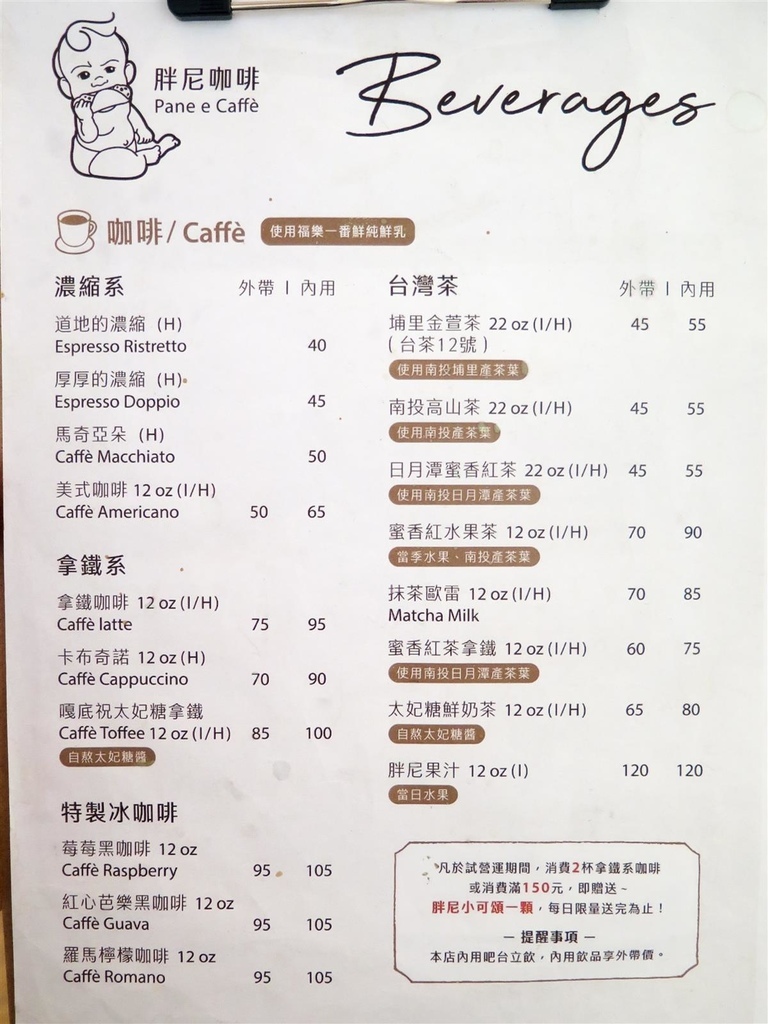 胖尼咖啡
Pane e Caffè
Beverages
咖啡/ Caffè 使用福樂一番鮮純鮮乳
濃縮系 外帶 I 內用
道地的濃縮 (H)
Espresso Ristretto 40
厚厚的濃縮 (H)
Espresso Doppio 45
馬奇亞朵 (H)
Caffè Macchiato 50
美式咖啡 12 oz (I/H)
Caffè Americano 50 65
拿鐵系
拿鐵咖啡 12 oz (I/H)
Caffè latte 75 95
卡布奇諾 12 oz (H)
Caffè Cappuccino 70 90
嘎底祝太妃糖拿鐵
Caffè Toffee 12 oz (I/H) 85 100
自熬太妃糖醬
特製冰咖啡
莓莓黑咖啡 12 oz
Caffè Raspberry 95 105
紅心芭樂黑咖啡 12 oz
Caffè Guava 95 105
羅馬檸檬咖啡 12 oz
Caffè Romano 95 105
台灣茶 外帶 I 內用
埔里金萱茶 22 oz (I/H) 45 55
( 台茶12號 )
使用南投埔里產茶葉
南投高山茶 22 oz (I/H) 45 55
使用南投產茶葉
日月潭蜜香紅茶 22 oz (I/H) 45 55
使用南投日月潭產茶葉
蜜香紅水果茶 12 oz (I/H) 70 90
當季水果、南投產茶葉
抹茶歐雷 12 oz (I/H) 70 85
Matcha Milk
蜜香紅茶拿鐵 12 oz (I/H) 60 75
使用南投日月潭產茶葉
太妃糖鮮奶茶 12 oz (I/H) 65 80
自熬太妃糖醬
胖尼果汁 12 oz (I) 120 120
當日水果
凡於試營運期間，消費2杯拿鐵系咖啡
或消費滿150元，即贈送~
胖尼小可頌一顆，每日限量送完為止！
— 提醒事項 —
本店內用吧台立飲，內用飲品享外帶價。